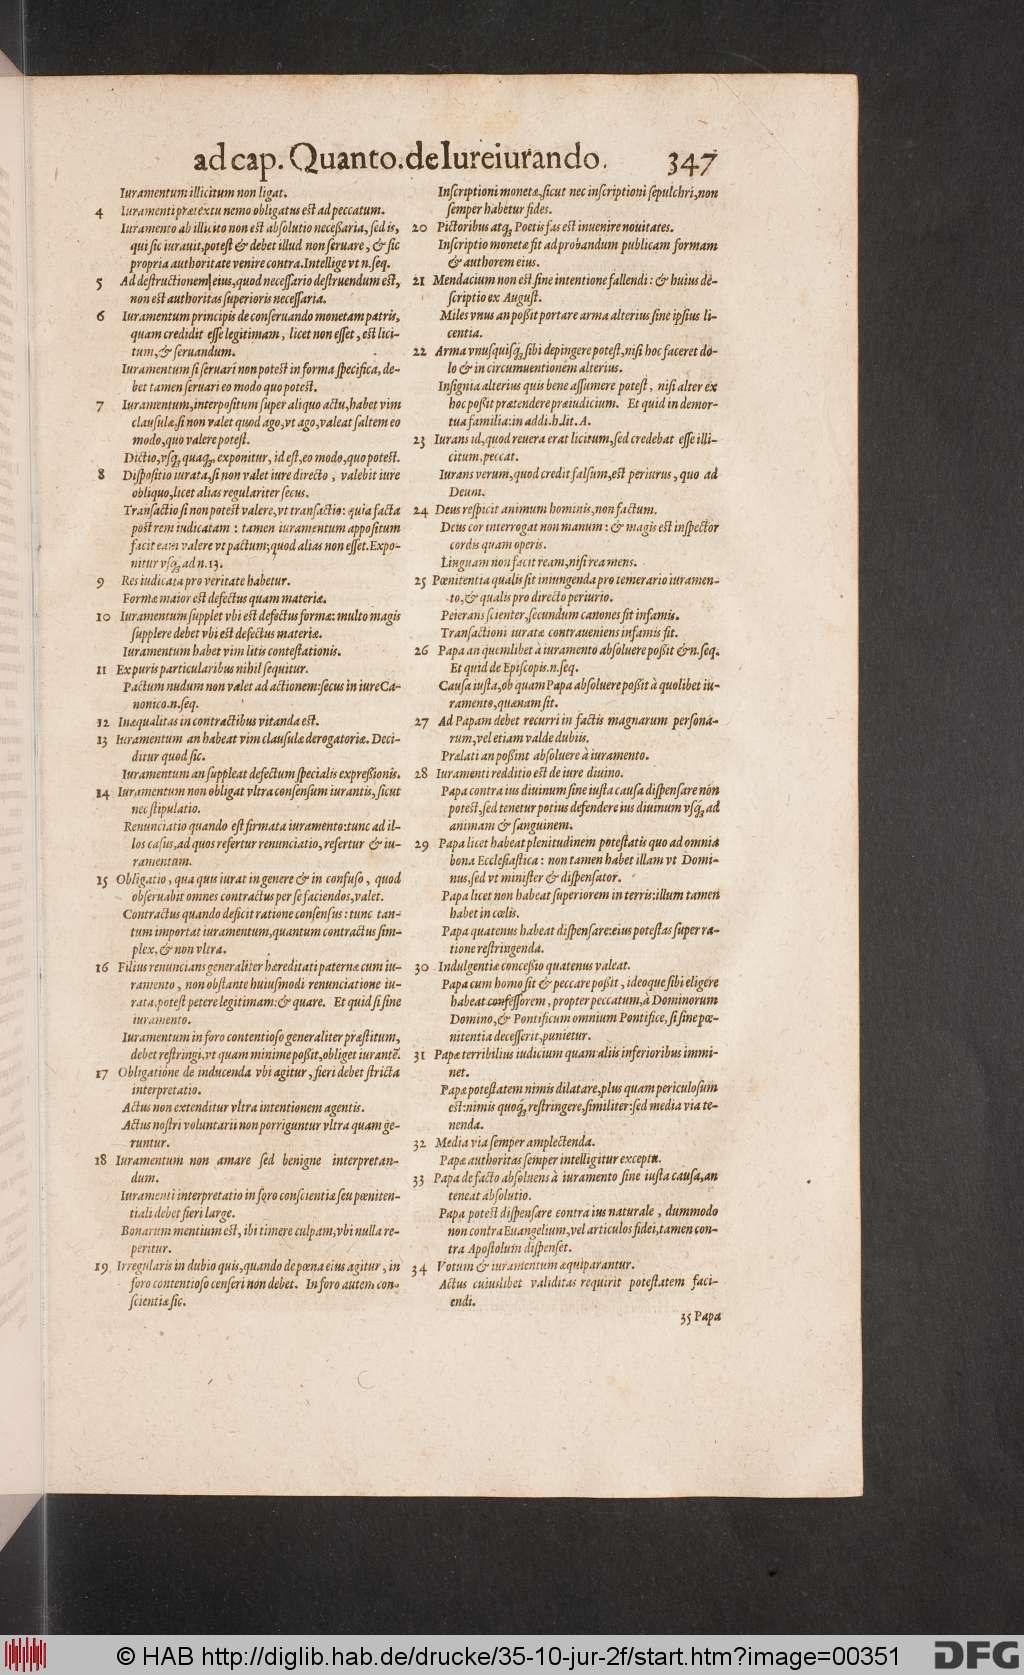 ad cap. Quanto. de Iureiurando. 347
Iuramentum illicitum non ligat.
4 Iuramenti prætextu nemo obligatus est ad peccatum.
Iuramento ab illicito non est absolutio neceßaria, sed is,
qui sic iurauit, potest & debet illud non seruare, & sic
propria authoritate venire contra. Intellige vt n. seq.
5 Ad destructionem eius, quod necessario destruendum est,
non est authoritas superioris necessaria.
6 Iuramentum principis de conseruando monetam patris,
quam credidit esse legitimam, licet non esset, est lici-
tum, & seruandum.
Iuramentum si seruari non potest in forma specifica, de-
bet tamen seruari eo modo quo potest.
7 Iuramentum, interpositum super aliquo actu, habet vim
clausulæ, si non valet quod ago, vt ago, valeat saltem eo
modo, quo valere potest.
Dictio, vsq; quaq; exponitur, id est, eo modo, quo potest.
8 Dispositio iurata, si non valet iure directo, valebit iure
obliquo, licet alias regulariter secus.
Transactio si non potest valere, vt transactio: quia facta
post rem iudicatam: tamen iuramentum appositum
facit eam valere vt pactum; quod alias non esset. Expo-
nitur vsq; ad n. 13.
9 Res iudicata pro veritate habetur.
Formæ maior est defectus quam materiæ.
10 Iuramentum supplet vbi est defectus formæ: multo magis
supplere debet vbi est defectus materiæ.
Iuramentum habet vim litis contestationis.
11 Ex puris particularibus nihil sequitur.
Pactum nudum non valet ad actionem: secus in iure Ca-
nonico. n. seq.
12 Inæqualitas in contractibus vitanda est.
13 Iuramentum an habeat vim clausulæ derogatoriæ. Deci-
ditur quod sic.
Iuramentum an suppleat defectum specialis expreßionis.
14 Iuramentum non obligat vltra consensum iurantis, sicut
nec stipulatio.
Renunciatio quando est firmata iuramento: tunc ad il-
los casus, ad quos refertur renunciatio, refertur & iu-
ramentum.
15 Obligatio, qua quis iurat in genere & in confuso, quod
obseruabit omnes contractus per se faciendos, valet.
Contractus quando deficit ratione consensus: tunc tan-
tum importat iuramentum, quantum contractus sim-
plex, & non vltra.
16 Filius renuncians generaliter hæreditati paternæ cum iu-
ramento, non obstante huiusmodi renunciatione iu-
rata, potest petere legitimam: & quare. Et quid si sine
iuramento.
Iuramentum in foro contentioso generaliter præstitum,
debet restringi, vt quam minime poßit, obliget iurantē.
17 Obligatione de inducenda vbi agitur, fieri debet stricta
interpretatio.
Actus non extenditur vltra intentionem agentis.
Actus nostri voluntarii non porriguntur vltra quam ge-
runtur.
18 Iuramentum non amare sed benigne interpretan-
dum.
Iuramenti interpretatio in foro conscientiæ seu pœniten-
tiali debet fieri large.
Bonarum mentium est, ibi timere culpam, vbi nulla re-
peritur.
19 Irregularis in dubio quis, quando de pœna eius agitur, in
foro contentioso censeri non debet. In foro autem con-
scientiæ sic.
Inscriptioni monetæ, sicut nec inscriptioni sepulchri, non
semper habetur fides.
20 Pictoribus atq; Poetis fas est inuenire nouitates.
Inscriptio monetæ fit ad probandum publicam formam
& authorem eius.
21 Mendacium non est sine intentione fallendi: & huius de-
scriptio ex August.
Miles vnus an poßit portare arma alterius sine ipsius li-
centia.
22 Arma vnusquisq; sibi depingere potest, nisi hoc faceret do-
lo & in circumuentionem alterius.
Insignia alterius quis bene assumere potest, nisi alter ex
hoc poßit prætendere præiudicium. Et quid in demor-
tua familia: in addi. h. lit. A.
23 Iurans id, quod reuera erat licitum, sed credebat esse illi-
citum, peccat.
Iurans verum, quod credit falsum, est periurus, quo ad
Deum.
24 Deus respicit animum hominis, non factum.
Deus cor interrogat non manum: & magis est inspector
cordis quam operis.
Linguam non facit ream, nisi rea mens.
25 Pœnitentia qualis sit iniungenda pro temerario iuramen-
to, & qualis pro directo periurio.
Peierans scienter, secundum canones fit infamis.
Transactioni iuratæ contraueniens infamis fit.
26 Papa an quemlibet à iuramento absoluere poßit & n. seq.
Et quid de Episcopis. n. seq.
Causa iusta, ob quam Papa absoluere poßit à quolibet iu-
ramento, quænam sit.
27 Ad Papam debet recurri in factis magnarum persona-
rum, vel etiam valde dubiis.
Prælati an poßint absoluere à iuramento.
28 Iuramenti redditio est de iure diuino.
Papa contra ius diuinum sine iusta causa dispensare non
potest, sed tenetur potius defendere ius diuinum vsq; ad
animam & sanguinem.
29 Papa licet habeat plenitudinem potestatis quo ad omnia
bona Ecclesiastica: non tamen habet illam vt Domi-
nus, sed vt minister & dispensator.
Papa licet non habeat superiorem in terris: illum tamen
habet in cœlis.
Papa quatenus habeat dispensare: eius potestas super ra-
tione restringenda.
30 Indulgentiæ conceßio quatenus valeat.
Papa cum homo sit & peccare poßit, ideoque sibi eligere
habeat confessorem, propter peccatum, à Dominorum
Domino, & Pontificum omnium Pontifice, si sine pœ-
nitentia decesserit, punietur.
31 Papæ terribilius iudicium quam aliis inferioribus immi-
net.
Papæ potestatem nimis dilatare, plus quam periculosum
est: nimis quoq; restringere, similiter: sed media via te-
nenda.
32 Media via semper amplectenda.
Papæ authoritas semper intelligitur excepta.
33 Papa de facto absoluens à iuramento sine iusta causa, an
teneat absolutio.
Papa potest dispensare contra ius naturale, dummodo
non contra Euangelium, vel articulos fidei, tamen con-
tra Apostolum dispenset.
34 Votum & iuramentum æquiparantur.
Actus cuiuslibet validitas requirit potestatem faci-
endi.
35 Papa
© HAB http://diglib.hab.de/drucke/35-10-jur-2f/start.htm?image=00351
DFG